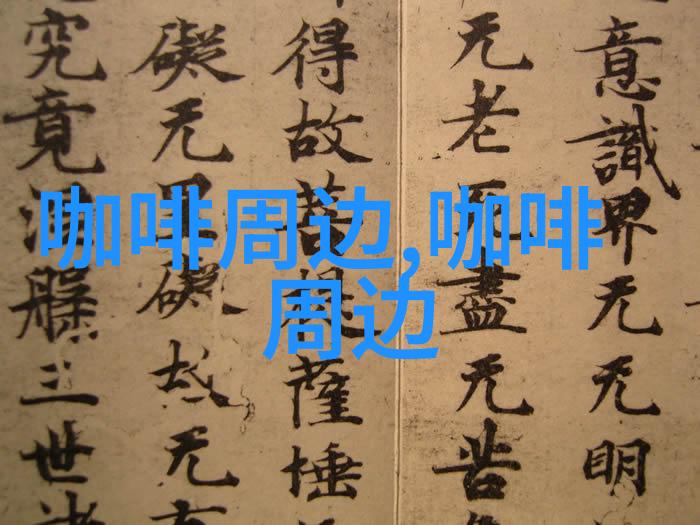 咖啡周边,咖啡
周边
意識界无无明
无老死盡无苦
得故菩提薩埵
礙无罣礙故无有
究竟涅槃三世諸